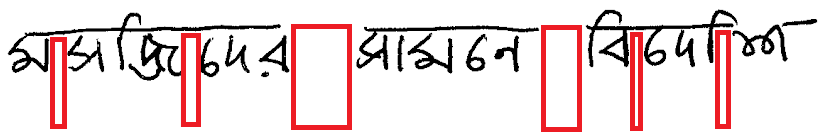 মসজিদের সামনে বিদেশি